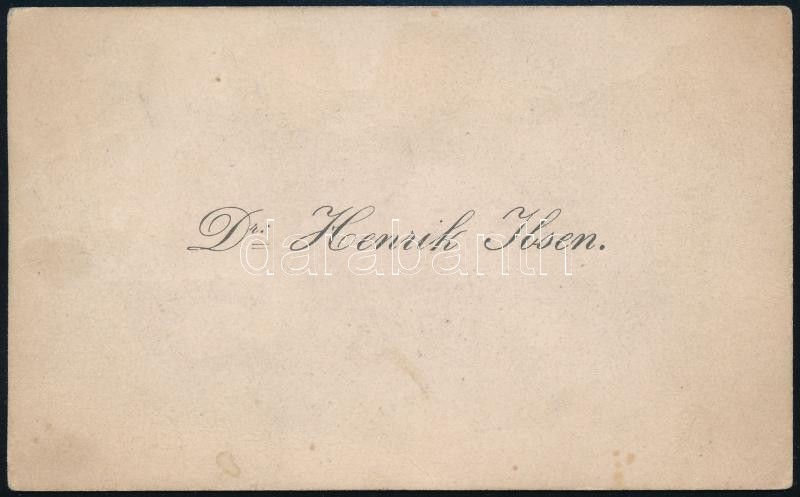 Dr. Henrik Ibsen.
darabanth